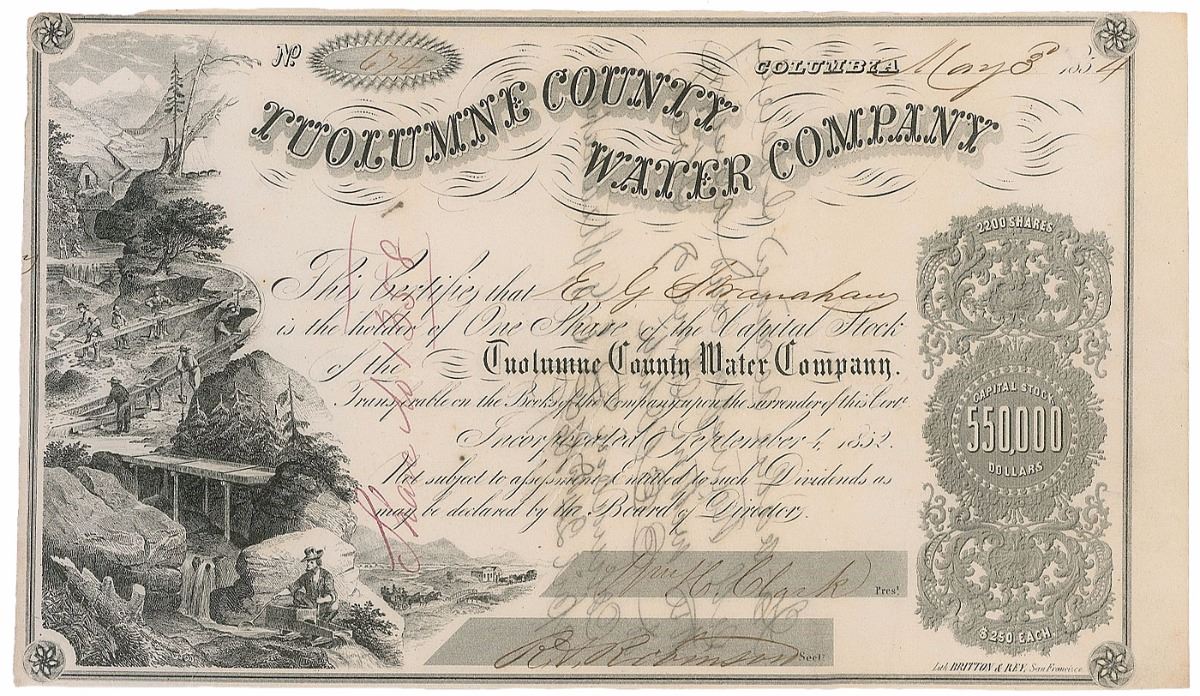 No 674
COLUMBIA May 3d 1854
TUOLUMNE COUNTY
WATER COMPANY
This Certifies that E G Stranahan
is the holder of One Share of the Capital Stock
of the Tuolumne County Water Company.
Transferable on the Books of the Company upon the surrender of this Certe
Incorporated September 4, 1852.
Not subject to assessment Entitled to such Dividends as
may be declared by the Board of Directors.
Wm H. Clark Prest
Robinson Secty
Share No 1358
2200 SHARES
CAPITAL STOCK
550,000
DOLLARS
$250 EACH
Lith. BRITTON & REY, San Francisco.